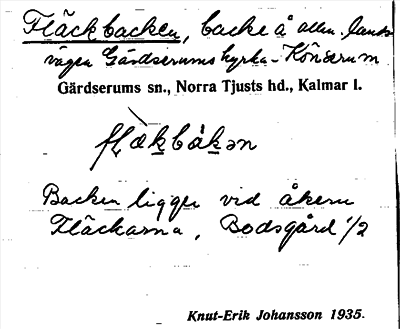 Fläckbacken, backe å allm. lands-
vägen Gärdserums kyrka - Könserum
Gärdserums sn., Norra Tjusts hd., Kalmar l.
flækbákən
Backen ligger vid åkern
Fläckarna, Bodsgård 1/2
Knut-Erik Johansson 1935.